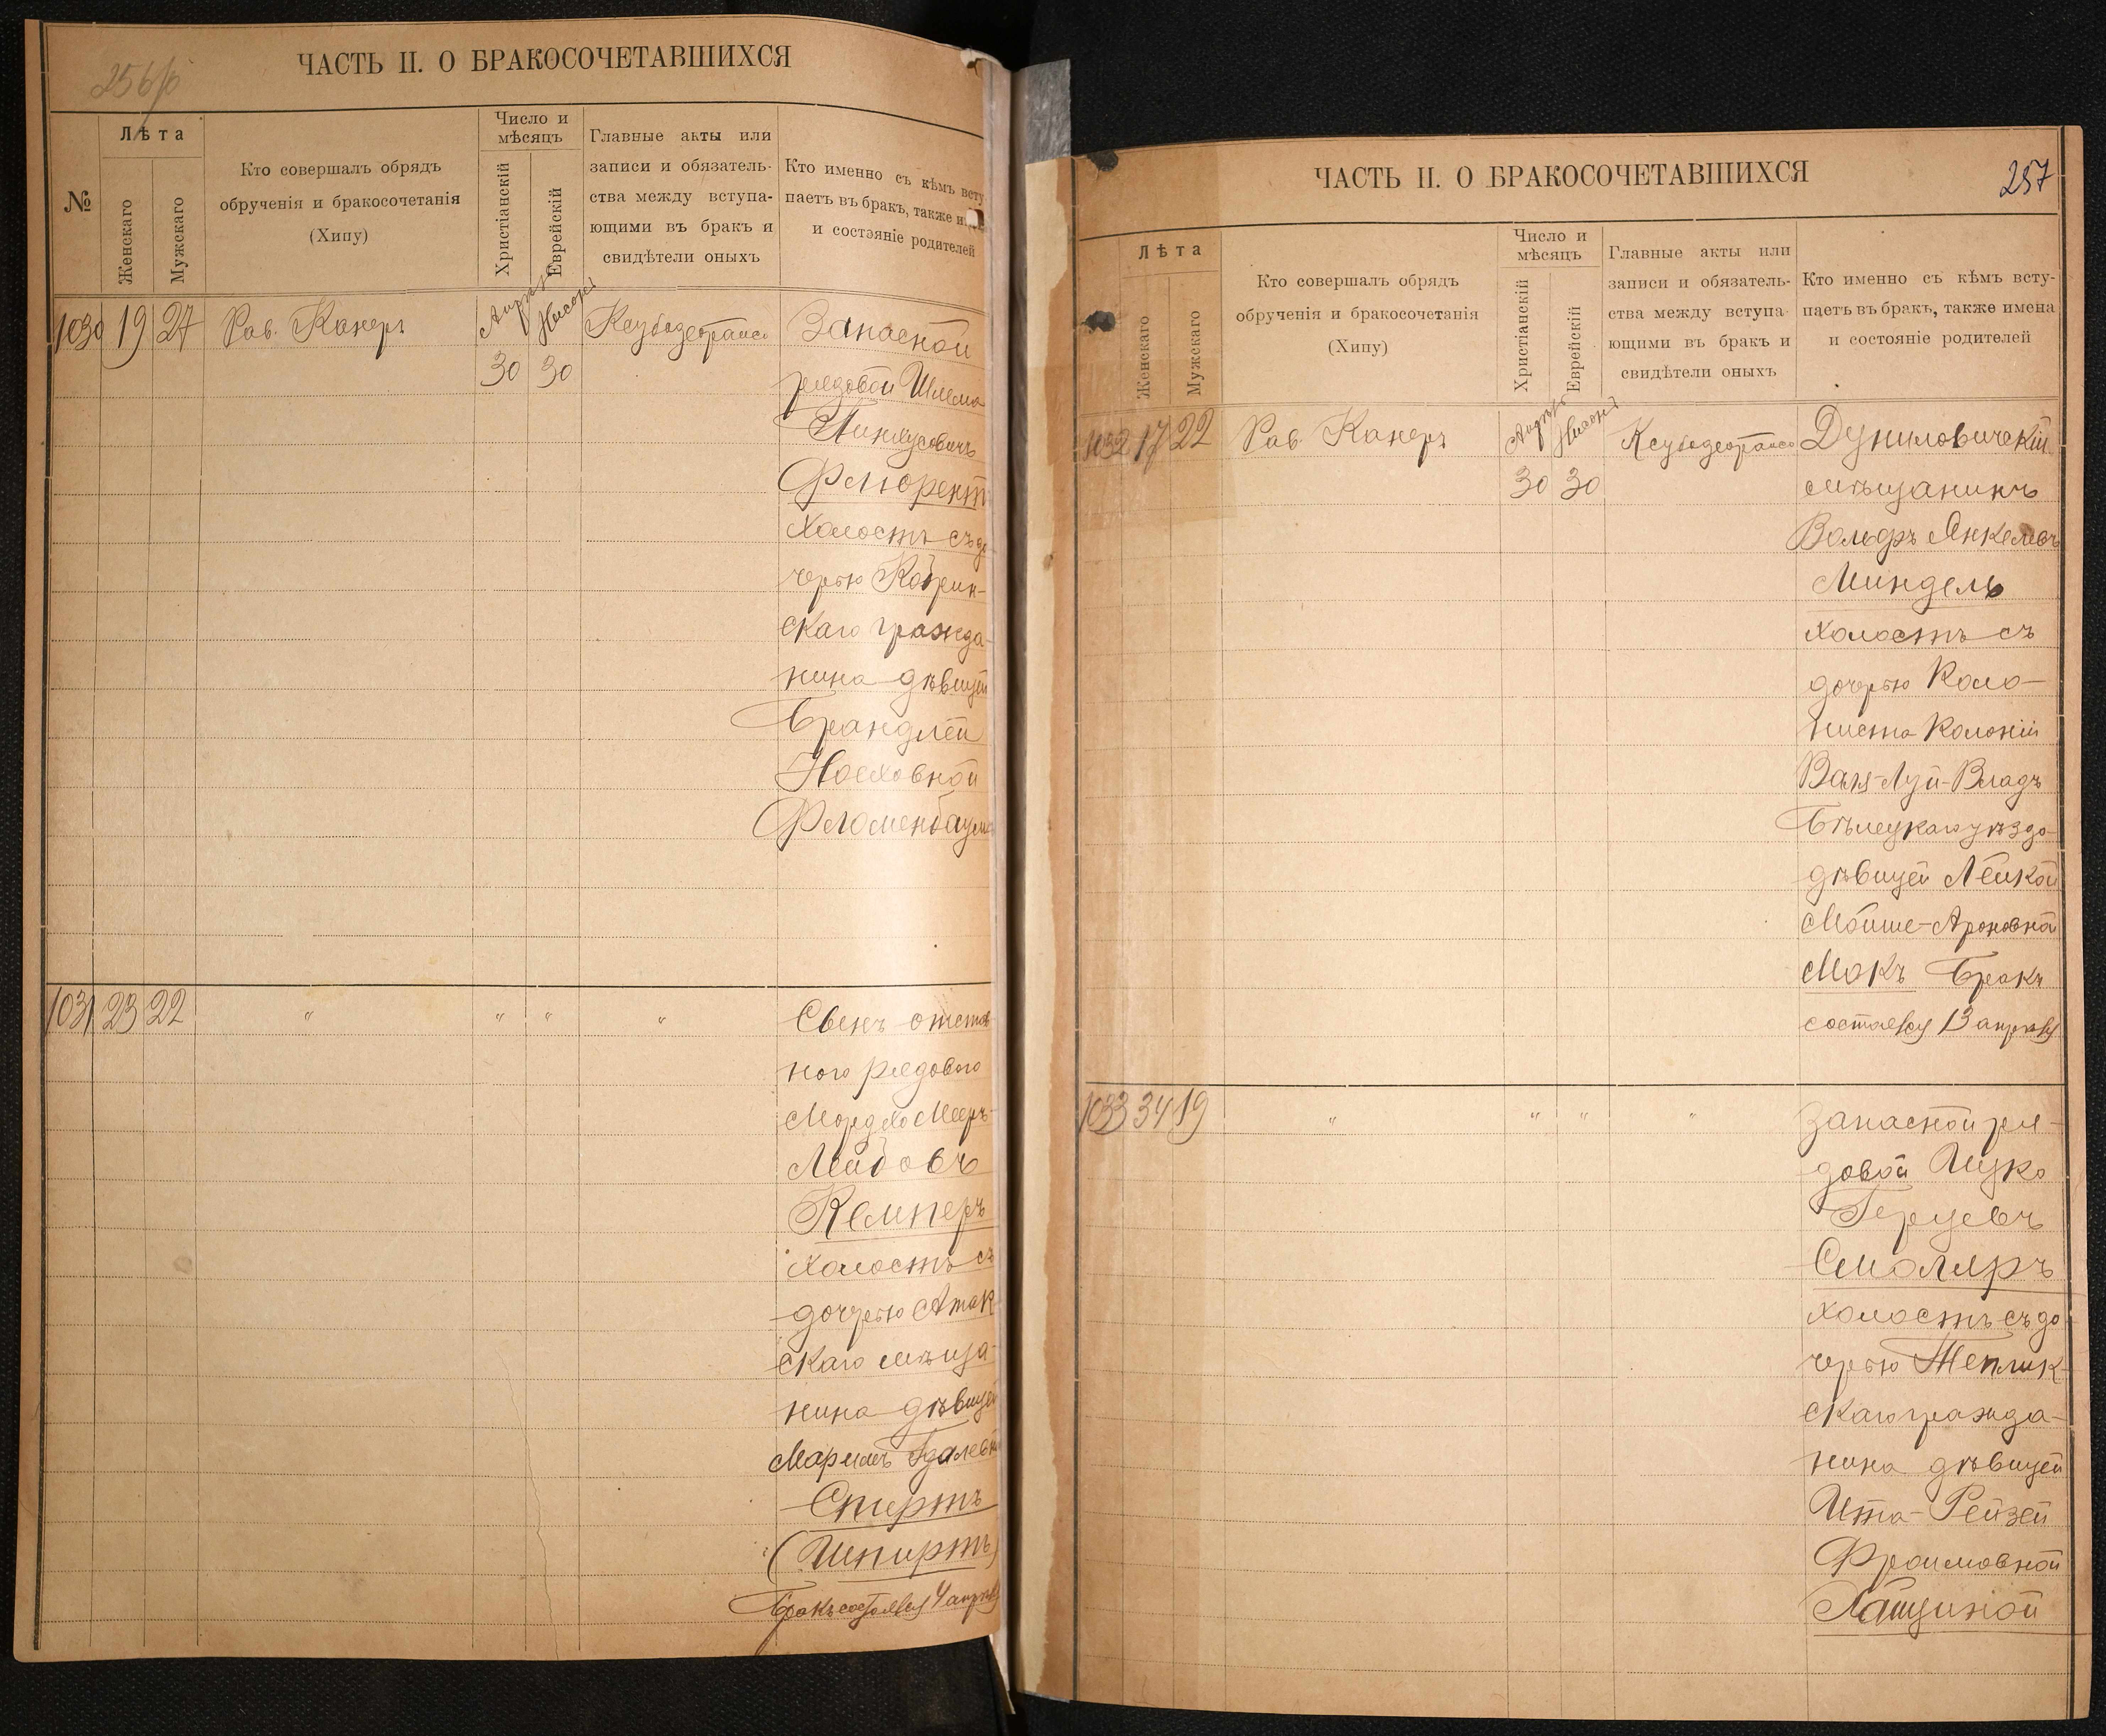 256/б
ЧАСТЬ II. О БРАКОСОЧЕТАВШИХСЯ
№
Лѣта
Женскаго
Мужскаго
Кто совершалъ обрядъ
обрученія и бракосочетанія
(Хипу)
Число и
мѣсяцъ
Христіанскій
Еврейскій
Главные акты или
записи и обязатель-
ства между вступа-
ющими въ бракъ и
свидѣтели оныхъ
Кто именно съ кѣмъ всту
паетъ въ бракъ, также
и состояніе родителей
1030 19 27 Рав. Канеръ
30 30
Запасной
рядовой Шлема
Пинкусовичъ
Флорент
холостъ съ до
черью Кобрин-
скаго гражда-
нина дѣвицей
Брандлей
Носховной
Фломенбаумъ
1031 23 22 " " " "
Сынъ отстав
ного рядового
Мордхо Мееръ-
Лейбовъ
Кемперъ
холостъ съ
дочерью Атак
скаго мѣща-
нина дѣвицей
Маріамъ Гдалевн
Спертъ
(Шпиртъ)
Бракъ состоялся 4 апрѣля
ЧАСТЬ II. О БРАКОСОЧЕТАВШИХСЯ
257
Лѣта
Женскаго
Мужскаго
Кто совершалъ обрядъ
обрученія и бракосочетанія
(Хипу)
Число и
мѣсяцъ
Христіанскій
Еврейскій
Главные акты или
записи и обязатель-
ства между вступа
ющими въ бракъ и
свидѣтели оныхъ
Кто именно съ кѣмъ всту-
паетъ въ бракъ, также имена
и состояніе родителей
1032 17 22 Рав. Канеръ
30 30
Дуниловичскій
мѣщанинъ
Вольфъ Янкелевъ
Миндель
холостъ съ
дочерью Коло-
ниста Колоніи
Валя-Луй-Владъ
Бѣлецкаго уѣзда
дѣвицей Лейкой
Мойше-Ароновной
Мокъ Бракъ
состоялся 13 апрѣля
1033 34 19 " " " "
Запасной ря-
довой Ицко
Герцевъ
Смоляръ
холостъ съ до
черью Теплик-
скаго гражда-
нина дѣвицей
Ита-Рейзей
Фроимовной
Лащиной